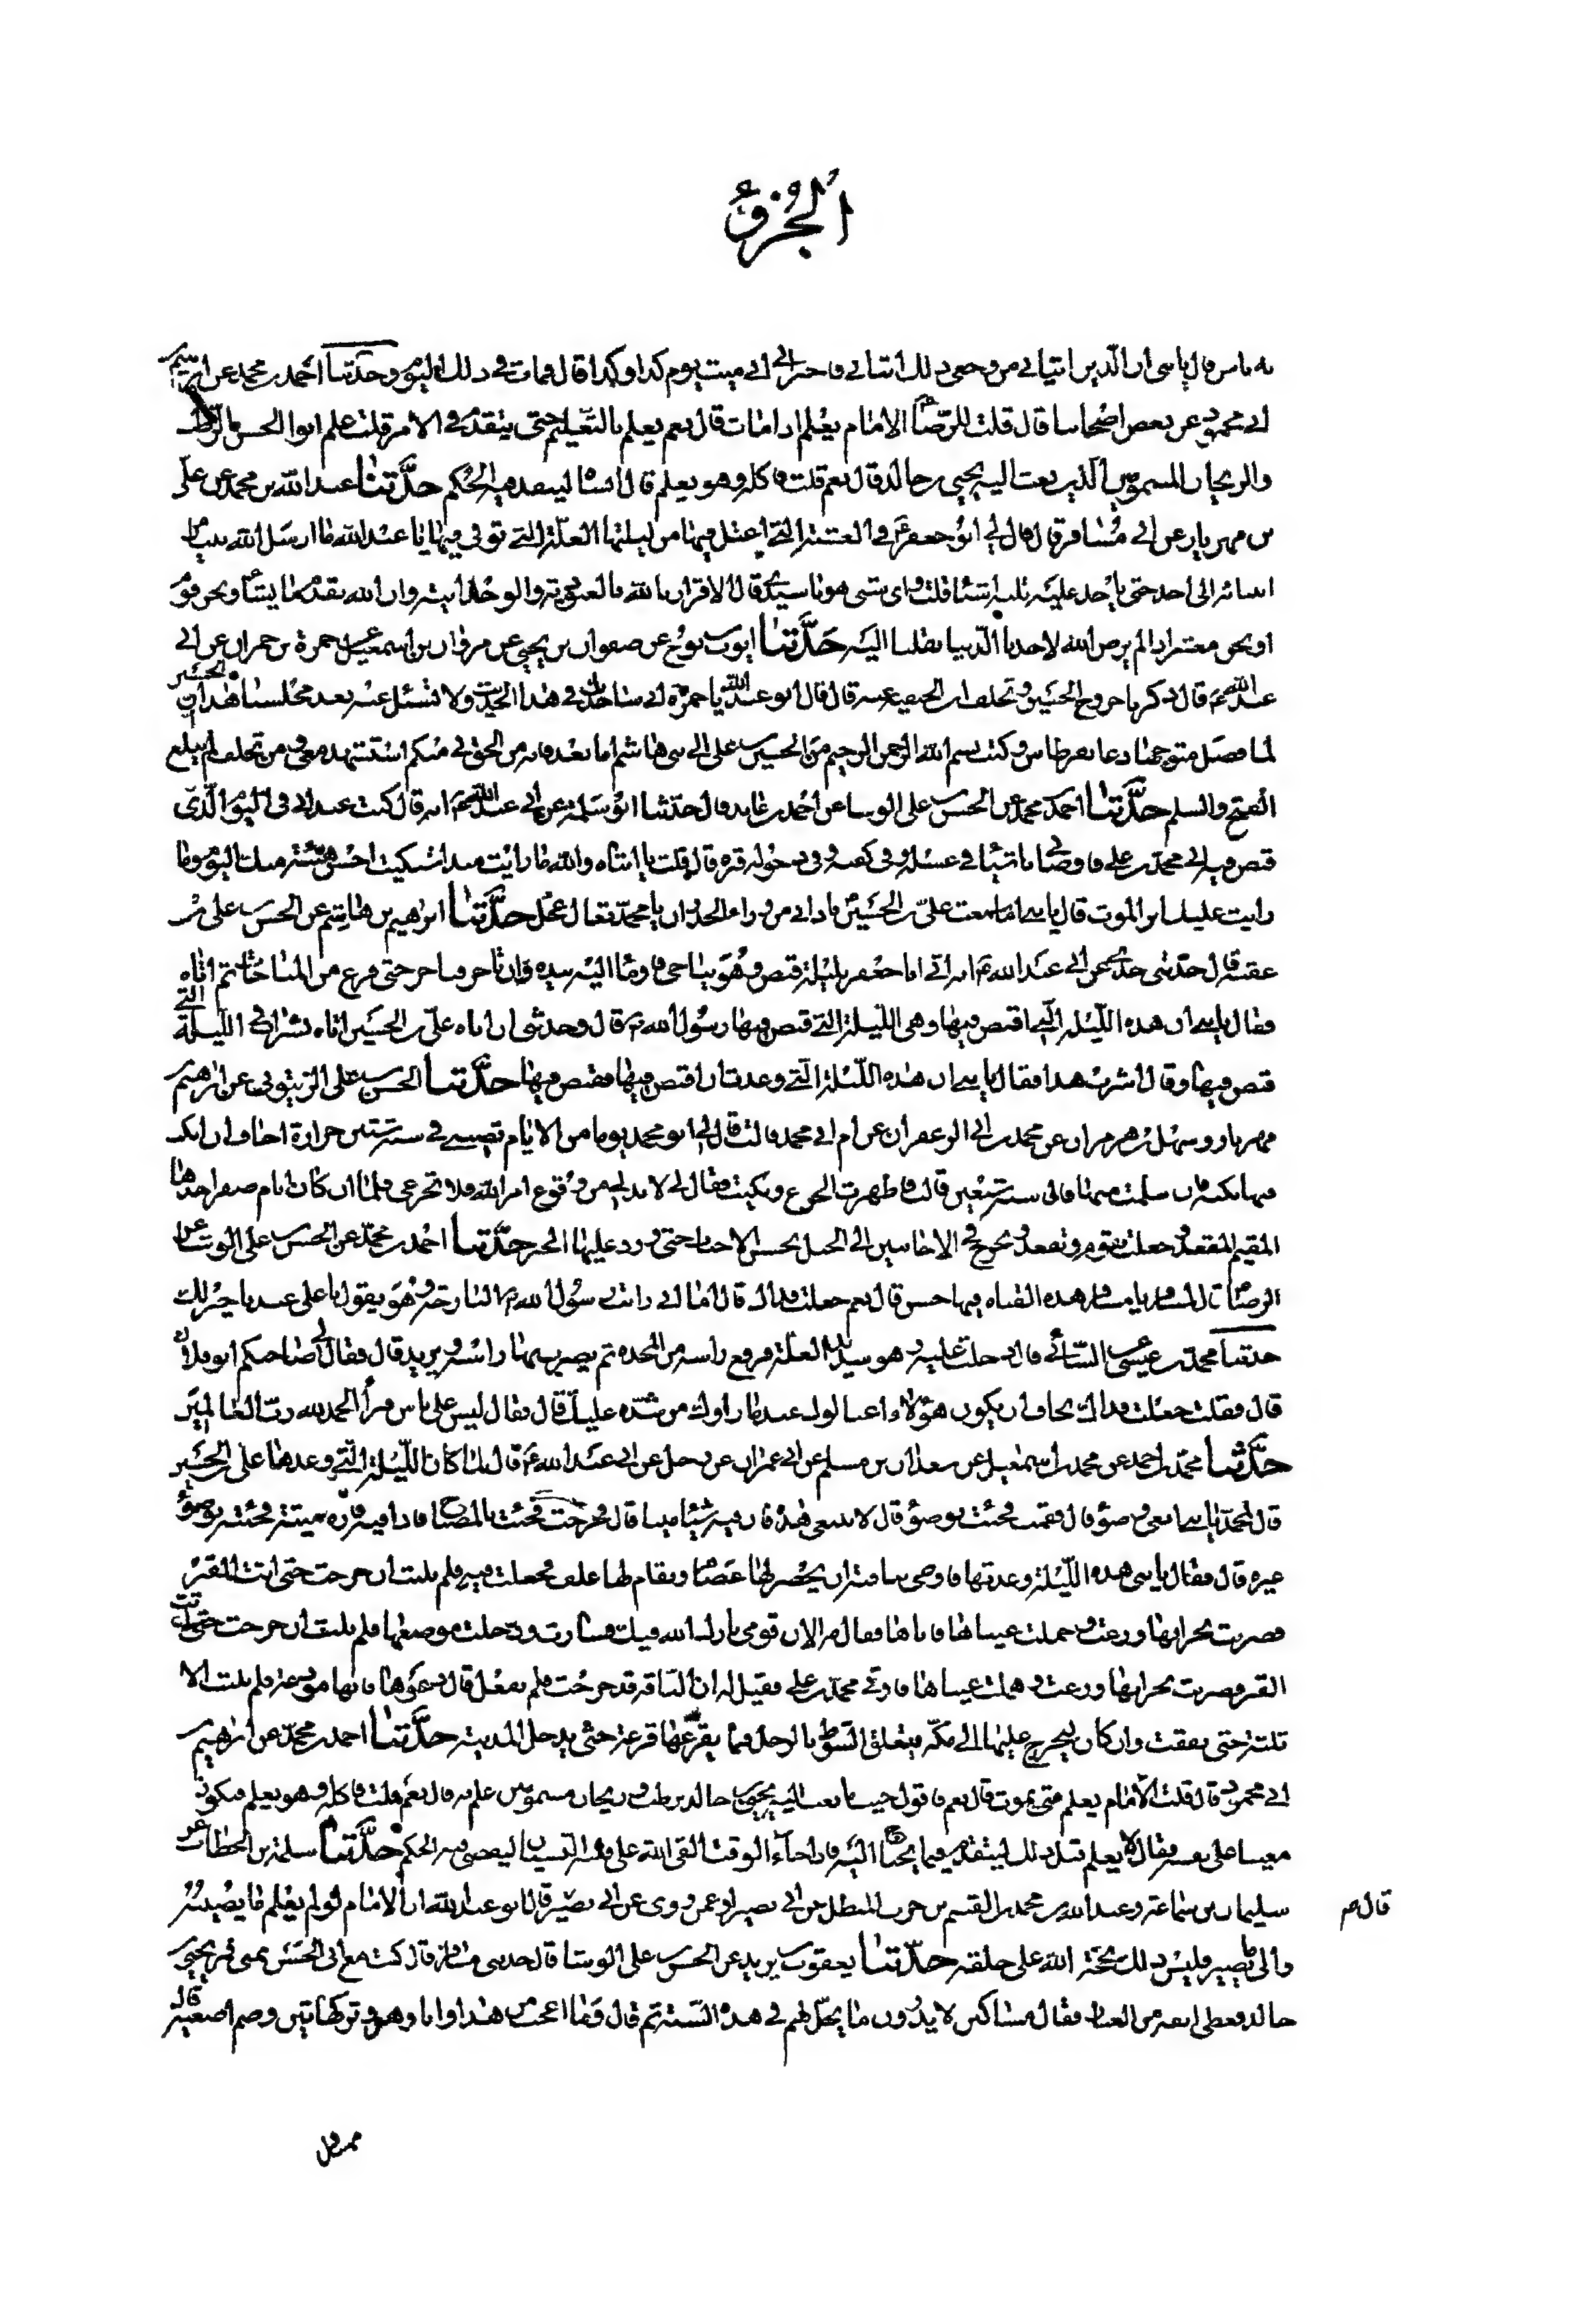 الجزؤ
به باس قال يا بنى ان الذين اتيانى من وجعى ذلك اتيانى فاخبرانى انى ميت يوم كذا وكذا قال فمات فى ذلك اليوم وحدثنا احمد بن محمد عن ابرهيم
ابى محمود عن بعض اصحابنا قال قلت للرضا الامام يعلم اذا مات قال نعم يعلم بالتعليم حتى يتقدم فى الامر قلت علم ابو الحسن بالرطب
والريحان المسمومين الذين بعث اليه يحيى بن خالد قال نعم قلت فاكله وهو يعلم قال انساه لينفذ فيه الحكم حدثنا عبد الله بن محمد عن على
بن مهزيار عن ابى مسافر قال قال لى ابو جعفر ع فى العشية التى اعتل فيها من ليلتها العلة التى توفى فيها يا عبد الله ما ارسل الله نبيا من
انبيائه الى احد حتى ياخذ عليه ثلثة اشيا قلت واى شى هو يا سيدى قال الاقرار بالله بالعبودية والوحدانية وان الله يقدم ما يشاء ونحن قوم
او نحن معشر اذا لم يرض الله لاحدنا الدنيا نقلنا اليه حدثنا ايوب بن نوح عن صفوان بن يحيى عن مروان بن اسمعيل عن حمزة بن حمران عن ابى
عبد الله ع قال ذكرنا خروج الحسين وتخلف ابن الحنفية عنه قال قال ابو عبد الله يا حمزة انى ساحدثك فى هذا الحديث ولا تسئل عنه بعد مجلسنا هذا ان الحسين
لما فصل متوجها دعا بقرطاس وكتب بسم الله الرحمن الرحيم من الحسين بن على الى بنى هاشم اما بعد فانه من الحق بى منكم استشهد معى ومن تخلف لم يبلغ
الفتح والسلم حدثنا احمد بن محمد عن الحسن بن على الوشا عن احمد بن عايد قال حدثنا ابو سلمة عن ابى عبد الله ع انه قال كنت عند ابى فى اليوم الذى
قبض فيه ابى محمد بن على فاوصانى باشيا فى غسله وفى كفنه وفى دخوله قبره قال قلت يا ابتاه والله ما رايت منذ اشتكيت احسن هيئة منك اليوم وما
رايت عليك اثر الموت قال يا بنى اما سمعت على بن الحسين نادانى من وراء الجدران يا محمد تعال عجل حدثنا ابراهيم بن هاشم عن الحسن بن على بن
عقبة قال حدثنى جدى عن ابى عبد الله ع انه اتى ابا جعفر بليلة قبض وهو يناجى فاوما اليه بيده ان تاخر فتاخر حتى فرغ من المناجاة ثم اتاه
فقال يا بنى ان هذه الليلة التى اقبض فيها وهى الليلة التى قبض فيها رسول الله ص قال وحدثنى ان اباه على بن الحسين اتاه بشراب فى الليلة التى
قبض فيها وقال اشرب هذا فقال يا بنى ان هذه الليلة التى وعدت ان اقبض فيها فقبض فيها حدثنا الحسن بن على الزيتونى عن ابرهيم
مهزيار وسهل بن هرمزان عن محمد بن ابى الزعفران عن ام ابى محمد قالت قال لى ابو محمد يوما من الايام تصيبنى فى سنة ستين حرارة اخاف ان انكب
فيها نكبة فان سلمت منها فالى سنة سبعين قالت فاظهرت الجزع وبكيت فقال لى لا بد لى من وقوع امر الله فلا تجزعى فلما ان كان ايام صفر اخذها
المقيم المقعد وجعلت تقوم وتقعد وتخرج فى الاحايين الى الجبل تجسس الاخبار حتى ورد عليها الخبر حدثنا احمد بن محمد عن الحسن بن على الوشا عن
الرضا قال لمسافر يا مسافر هذه القناة فيها حسن قال نعم جعلت فداك قال اما انى رايت رسول الله ص البارحة وهو يقول يا على عندنا خير لك
حدثنا محمد بن عيسى السائى قال دخلت عليه وهو شديد العلة فرفع راسه من المخدة ثم يضرب بها راسه ويزيد قال فقال لى صاحبكم ابو فلان
قال فقلت جعلت فداك نخاف ان يكون هؤلاء اغتالوك عندما راوك من شدة عليك قال فقال ليس على باس فبرأ الحمد لله رب العالمين
حدثنا محمد بن احمد عن محمد بن اسمعيل عن سعدان بن مسلم عن ابى عمران عن رجل عن ابى عبد الله ع قال لما كان الليلة التى وعدها على بن الحسين
قال لمحمد يا بنى ابغنى وضوءا قال فقمت فجئت بوضوء قال لا ينبغى هذا فان فيه شيئا ميتا قال فخرجت فجئت بالمصباح فاذا فيه فارة ميتة فجئته بوضوء
غيره قال فقال يا بنى هذه الليلة وعدتها فاوصى بناقته ان يحضر لها عصام ويقام لها علف فجعلت فيه فلم يلبث ان خرجت حتى اتت القبر
فضربت بجرانها ورغت وهملت عيناها فاتاها فقال مه الان قومى بارك الله فيك فسارت ودخلت موضعها فلم يلبث ان خرجت حتى اتت
القبر فضربت بجرانها ورغت وهملت عيناها فاتى محمد بن على فقيل له ان الناقة قد خرجت فلم تفعل قال دعوها فانها مودعة فلم يلبث الا
ثلثة حتى نفقت وان كان ليخرج عليها الى مكة فيعلق السوط بالرحل فما يقرعها قرعة حتى يدخل المدينة حدثنا احمد بن محمد عن ابرهيم
ابى محمود قال قلت الامام يعلم متى يموت قال نعم فاقول حيث ما بعث اليه يحيى بن خالد بن رطب وريحان مسمومين علم به قال نعم قلت فاكله وهو يعلم فيكون
معينا على نفسه فقال لا يعلم قبل ذلك ليتقدم فيما يحتاج اليه فاذا جاء الوقت القى الله على قلبه النسيان ليقضى فيه الحكم حدثنا سلمة بن الخطاب عن
سليمان بن سماعة وعبد الله بن محمد بن القسم بن حرب البطل عن ابى بصير او عمن روى عن ابى بصير قال ابو عبد الله ان الامام لو لم يعلم ما يصيبه
والى ما يصير فليس ذلك بحجة الله على خلقه حدثنا يعقوب بن يزيد عن الحسن بن على الوشا قال حدثنى مسافر قال كنت مع ابى الحسن بمنى فمر يحيى
خالد فغطى انفه من الغبار فقال مساكين لا يدرون ما يحل بهم فى هذه السنة ثم قال وما اعجب من هذا وانا وهرون كهاتين وضم اصبعيه قال
قال هم